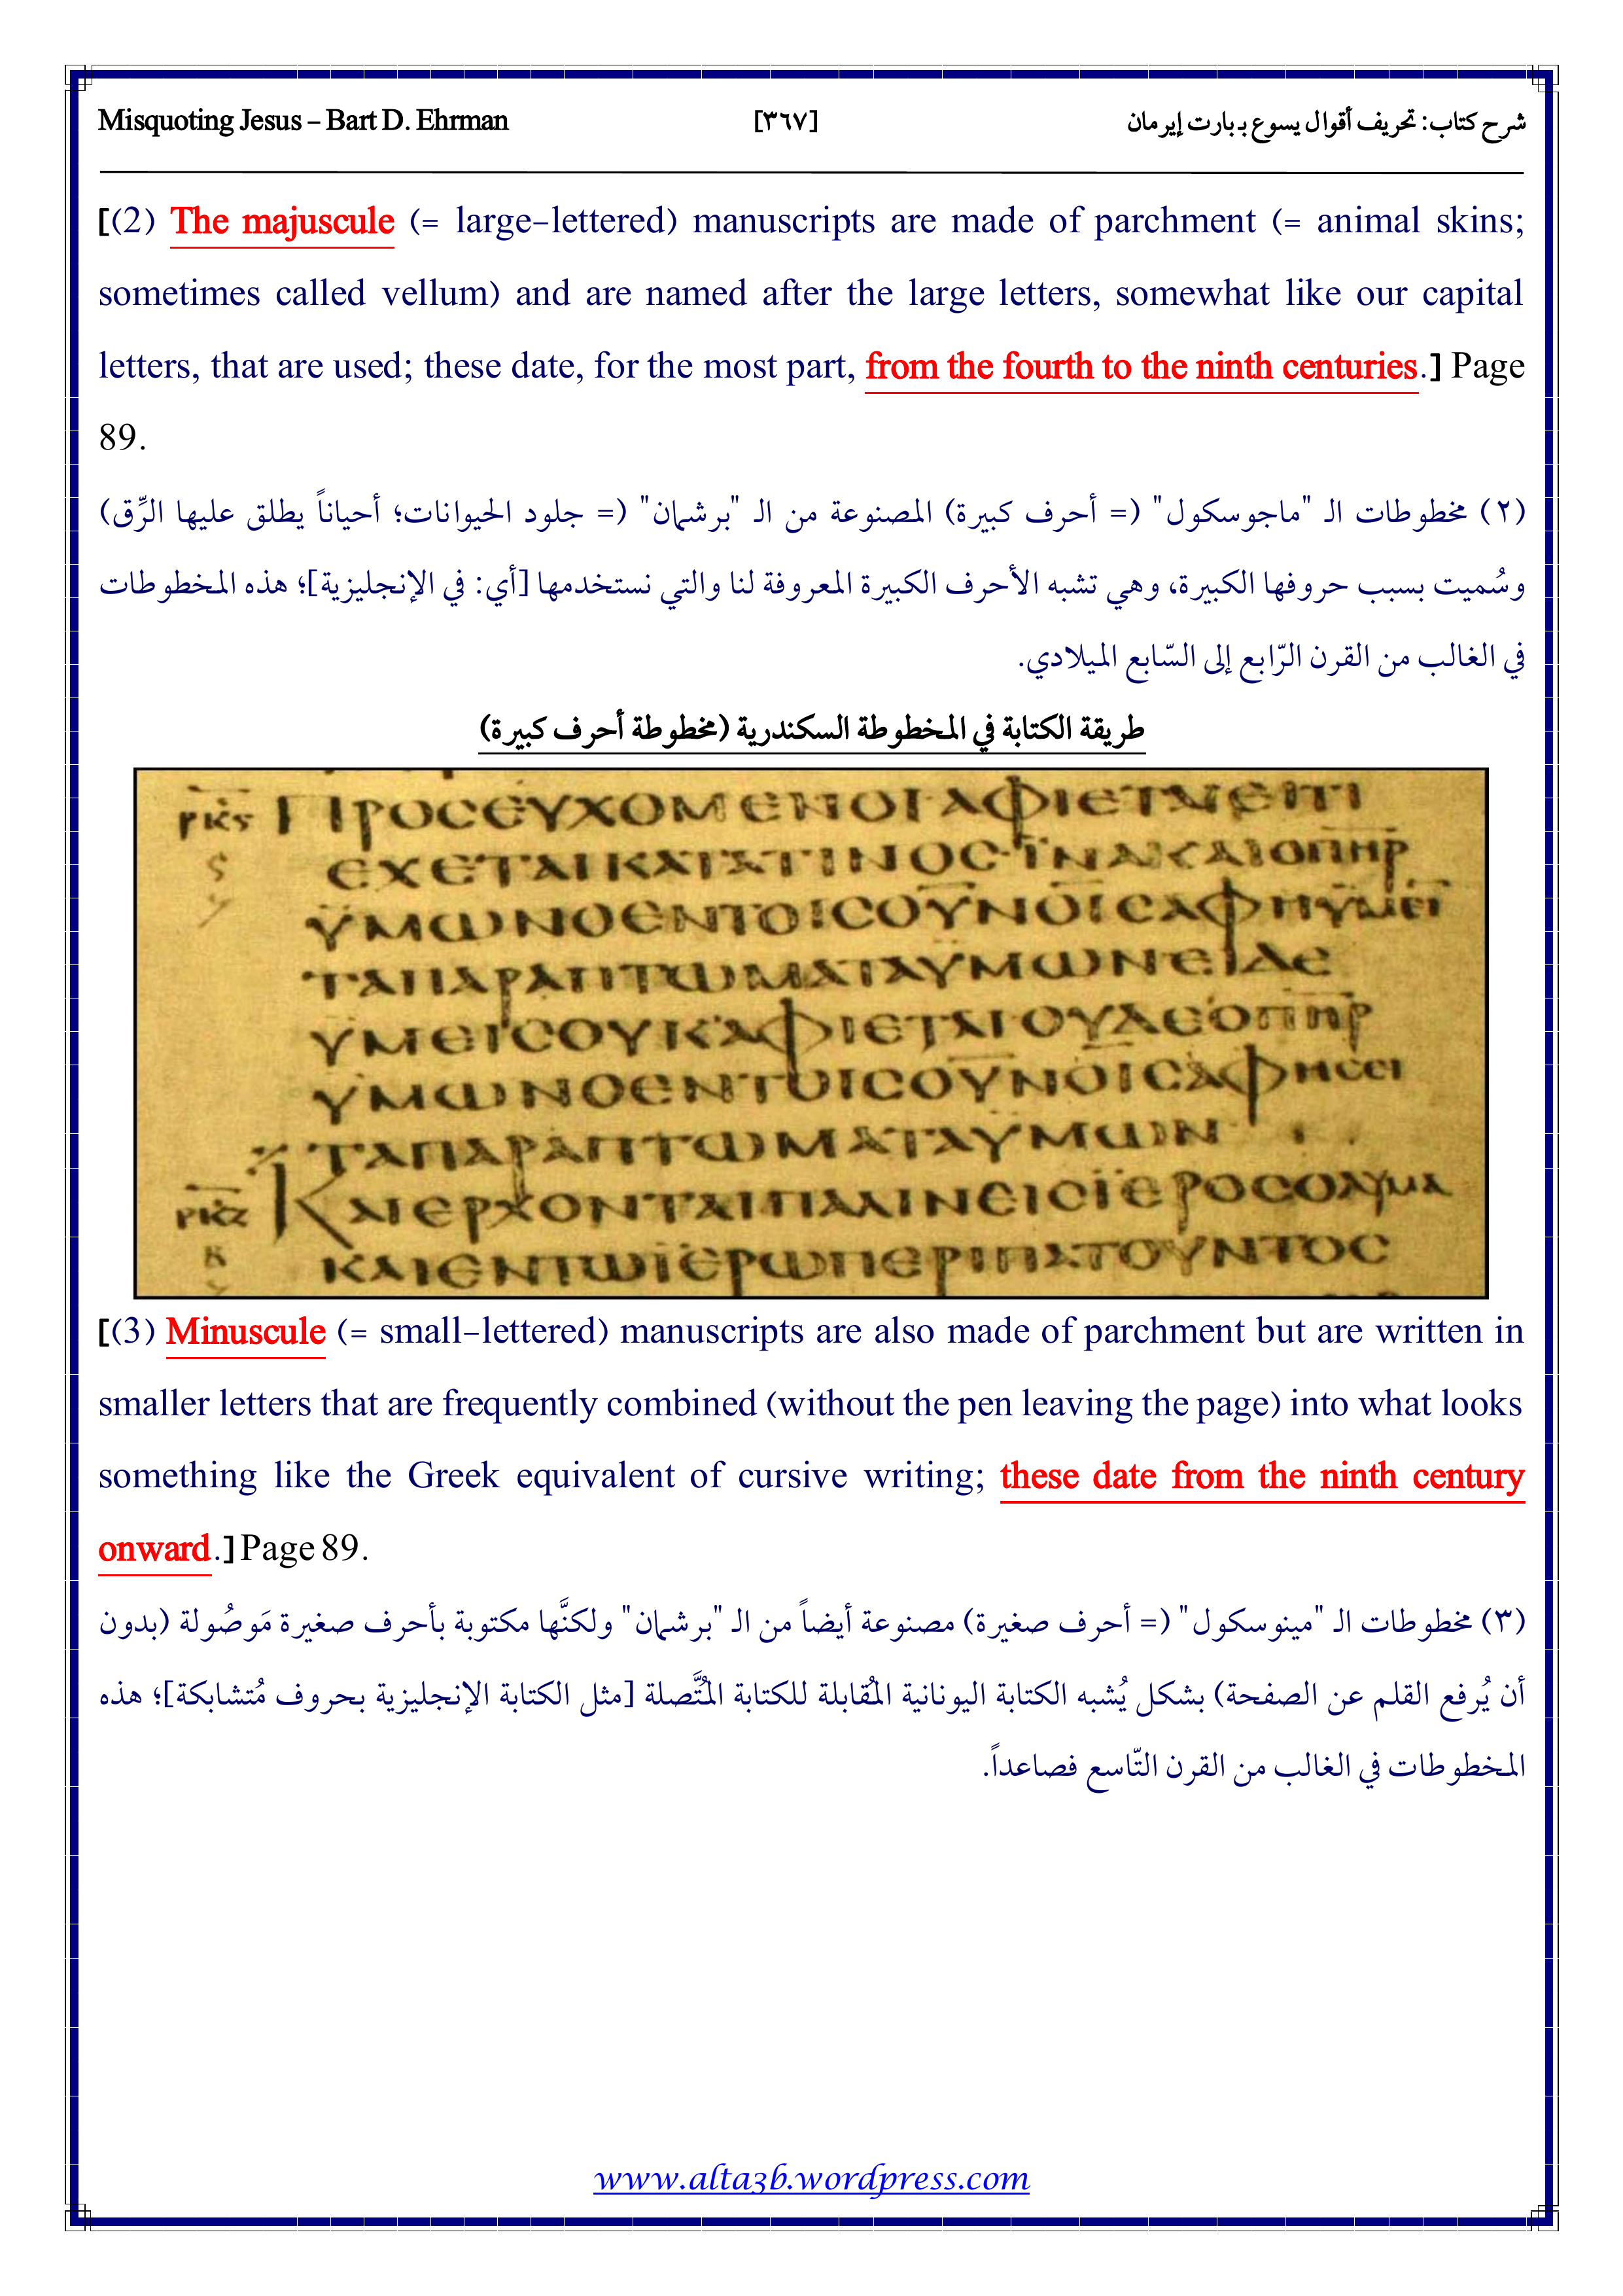 Misquoting Jesus – Bart D. Ehrman
[٣٦٧]
شرح كتاب: تحريف أقوال يسوع بـ بارت إيرمان
[(2) The majuscule (= large-lettered) manuscripts are made of parchment (= animal skins;
sometimes called vellum) and are named after the large letters, somewhat like our capital
letters, that are used; these date, for the most part, from the fourth to the ninth centuries.] Page
89.
(٢) مخطوطات الـ "ماجوسكول" (= أحرف كبيرة) المصنوعة من الـ "برشمان" (= جلود الحيوانات؛ أحياناً يطلق عليها الرِّق)
وسُميت بسبب حروفها الكبيرة، وهي تشبه الأحرف الكبيرة المعروفة لنا والتي نستخدمها [أي: في الإنجليزية]؛ هذه المخطوطات
في الغالب من القرن الرّابع إلى السّابع الميلادي.
طريقة الكتابة في المخطوطة السكندرية (مخطوطة أحرف كبيرة)
ΠΡΟCΕΥΧΟΜΕΝΟΙ ΑΦΙΕΤΑΙ ΕΙΤΙ
ΕΧΕΤΑΙΚΑΤΑΤΙΝΟC·ΪΝΑΚΑΙΟΠΗΡ
ΫΜΩΝΟΕΝΤΟΙCΟΥΝΟΙCΑΦΗΫΜΕΙ
ΤΑΠΑΡΑΠΤΩΜΑΤΑΥΜΩΝΕΙΔΕ
ΥΜΕΙCΟΥΚΑΦΙΕΤΑΙΟΥΔΕΟΠΗΡ
ΥΜΩΝΟΕΝΤΟΙCΟΥΝΟΙCΑΦΗCΕΙ
ΤΑΠΑΡΑΠΤΩΜΑΤΑΥΜΩΝ
ΚΑΙΕΡΧΟΝΤΑΙΠΑΛΙΝΕΙCΪΕΡΟCΟΛΥΜΑ
ΚΑΙΕΝΤΩΪΕΡΩΠΕΡΙΠΑΤΟΥΝΤΟC
[(3) Minuscule (= small-lettered) manuscripts are also made of parchment but are written in
smaller letters that are frequently combined (without the pen leaving the page) into what looks
something like the Greek equivalent of cursive writing; these date from the ninth century
onward.] Page 89.
(٣) مخطوطات الـ "مينوسكول" (= أحرف صغيرة) مصنوعة أيضاً من الـ "برشمان" ولكنَّها مكتوبة بأحرف صغيرة مَوصُولة (بدون
أن يُرفع القلم عن الصفحة) بشكل يُشبه الكتابة اليونانية المُقابلة للكتابة المُتَّصلة [مثل الكتابة الإنجليزية بحروف مُتشابكة]؛ هذه
المخطوطات في الغالب من القرن التّاسع فصاعداً.
www.alta3b.wordpress.com